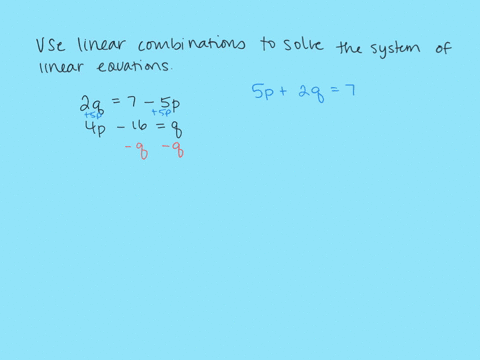 Use linear combinations to solve the system of
linear equations.
2q = 7 - 5p
+5p +5p
4p - 16 = q
-q -q
5p + 2q = 7